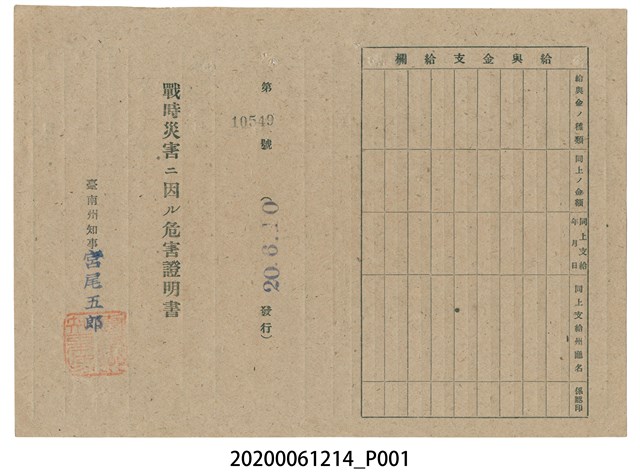 給與金支給欄
給與金ノ種類
同上ノ金額
同上支給年月日
同上支給州廳名
係認印
第10549號
20.6.10 發行)
戰時災害ニ因ル危害證明書
臺南州知事 宮尾五郎
20200061214_P001